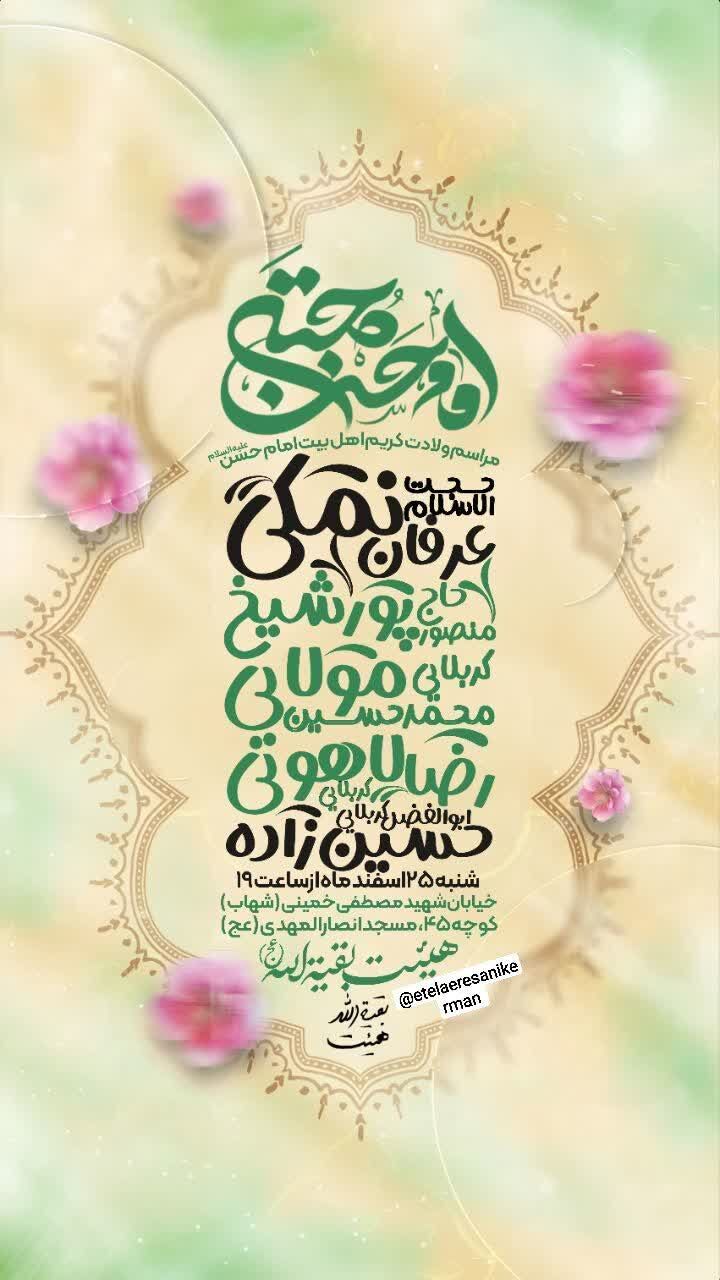 امام حسن مجتبی
مراسم ولادت کریم اهل بیت امام حسن علیه السلام
حجت الاسلام
عرفان نمکی
حاج منصور پورشیخ
کربلایی محمدحسین مولایی
کربلایی رضا لاهوتی
کربلایی ابوالفضل حسین زاده
شنبه ۲۵ اسفند ماه از ساعت ۱۹
خیابان شهید مصطفی خمینی (شهاب)
کوچه ۴۵، مسجد انصارالمهدی (عج)
هیئت بقیة الله (عج)
@etelaeresanike
rman
بقیة الله
هیئت